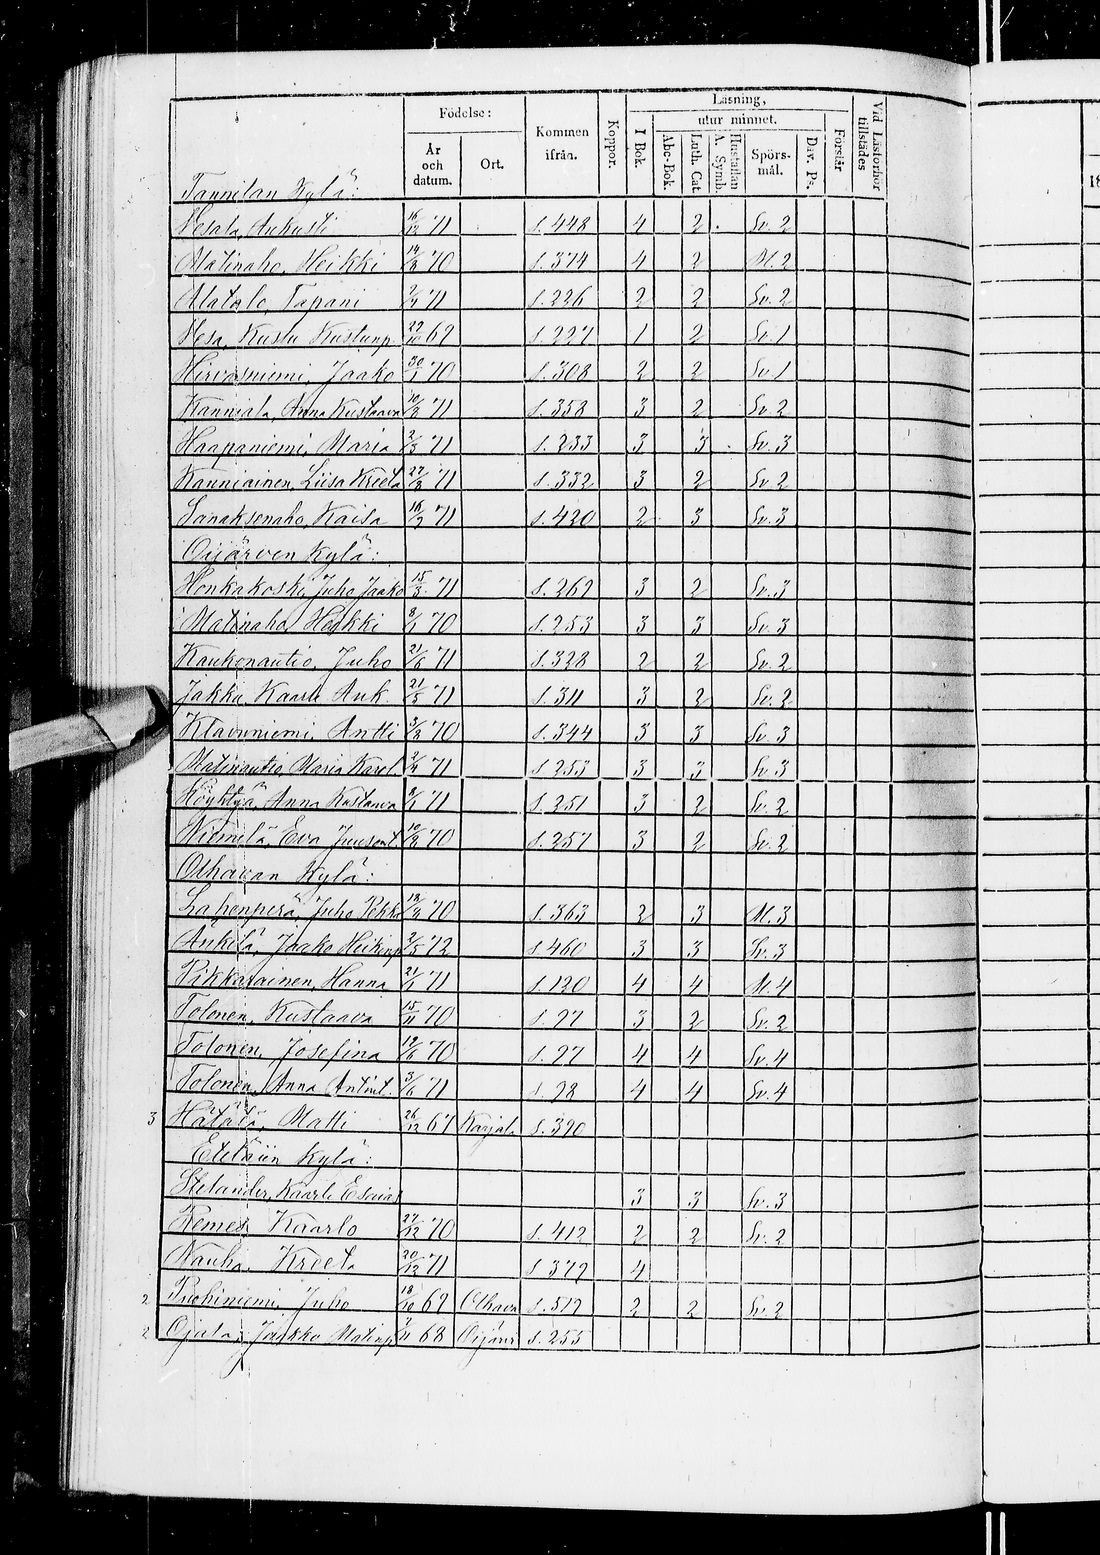 Födelse:
Läsning,
utur minnet.
År och datum.
Ort.
Kommen ifrån.
Koppor.
I Bok.
Abc-Bok.
Luth. Cat.
Hustaflan A. Symb.
Spörs-mål.
Dav. Ps.
Förstår
Vid Läsförhör tillstädes
18
Tannilan Kylä:
Vesala, Aukusti 16/12 71 S. 448 4 2 Sv. 2
Matinaho, Heikki 14/3 70 S. 374 4 2 M. 2
Alatalo, Tapani 2/4 71 S. 226 2 2 Sv. 2
Vesa, Kustu Kustunp. 29/10 69 S. 227 1 2 Sv. 1
Hirvasniemi, Jaako 30/1 70 S. 308 2 2 Sv. 1
Kanniala, Anna Kustaava 10/3 71 S. 358 3 2 Sv. 2
Haapaniemi, Maria 2/3 71 S. 233 3 3 Sv. 3
Kauniainen, Liisa Kreeta 27/3 71 S. 332 3 2 Sv. 2
Sanaksenaho, Kaisa 16/2 71 S. 420 2 3 Sv. 3
Oijärven Kylä:
Honkakoski, Juho Jaako 15/3 71 S. 269 3 2 Sv. 3
Matinaho, Heikki 8/1 70 S. 253 3 3 Sv. 3
Kaukonautio, Juho 21/6 71 S. 328 2 2 Sv. 2
Jakku, Kaarlo Auk. 21/5 71 S. 311 3 2 Sv. 2
Klavuniemi, Antti 3/3 70 S. 344 3 3 Sv. 3
Matinautio, Maria Karol. 2/4 71 S. 253 3 3 Sv. 3
Höyhtyä, Anna Kustaava 8/1 71 S. 251 3 2 Sv. 2
Niemelä, Eva 10/3 70 S. 257 3 2 Sv. 2
Olhavan Kylä:
Lahenperä, Juho Pekka 70 S. 363 2 3 M. 3
Änkilä, Jaako Heikinp. 2/5 72 S. 460 3 3 Sv. 3
Pikkarainen, Hanna 21/1 71 S. 120 4 4 M. 4
Tolonen, Kustaava 15/11 70 S. 27 3 2 Sv. 2
Tolonen, Josefina 19/6 70 S. 27 4 4 Sv. 4
Tolonen, Anna Antint. 3/6 71 S. 28 4 4 Sv. 4
3 Hätälä, Matti 26/12 67 Karjal. S. 390
Etelään Kylä:
Stelander, Kaarle Esaias 3 3 Sv. 3
Remes, Kaarlo 27/12 70 S. 412 2 2 Sv. 2
Nauha, Kreeta 20/12 71 S. 379 4
2 Puohiniemi, Juho 18/10 69 Olhava S. 519 2 2 Sv. 2
2 Ojala, Jaakko Matinp. 68 Oijärv. S. 255